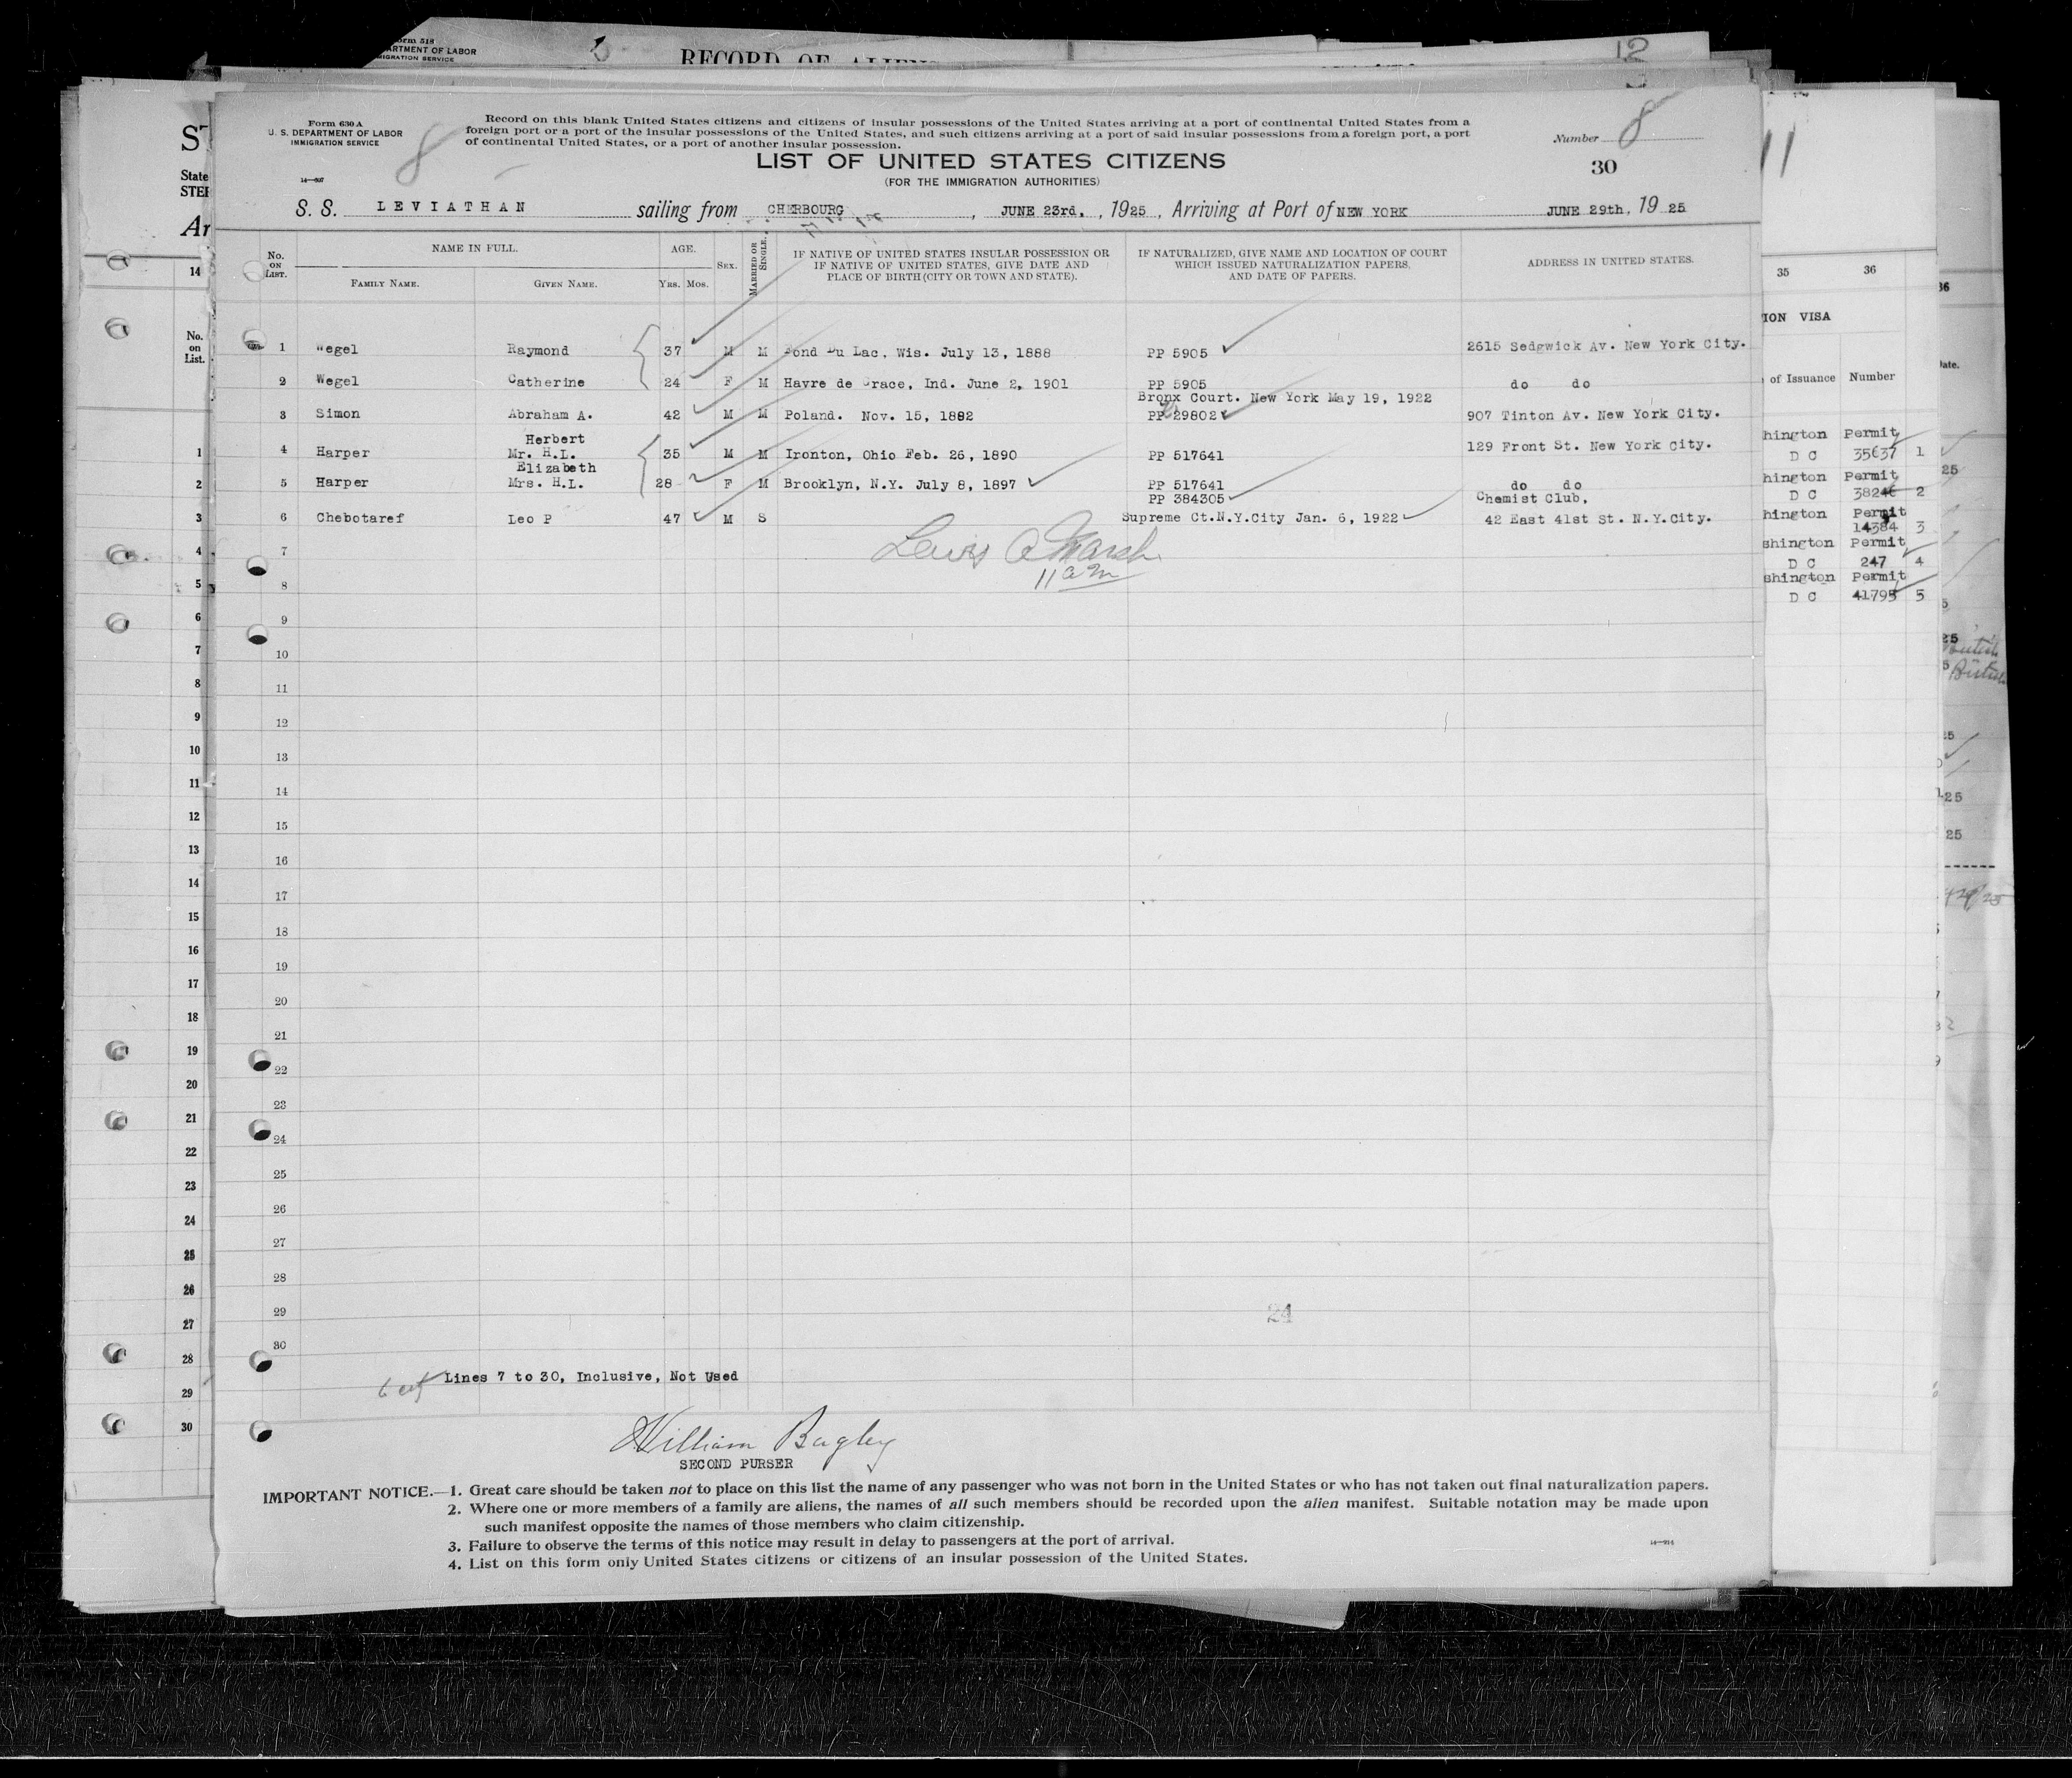 Form 518
RECORD OF ALIENS
12
Form 630 A
U. S. DEPARTMENT OF LABOR
IMMIGRATION SERVICE
14—607
8
Record on this blank United States citizens and citizens of insular possessions of the United States arriving at a port of continental United States from a
foreign port or a port of the insular possessions of the United States, and such citizens arriving at a port of said insular possessions from a foreign port, a port
of continental United States, or a port of another insular possession.
LIST OF UNITED STATES CITIZENS
(FOR THE IMMIGRATION AUTHORITIES)
Number 8
30
11
S. S. LEVIATHAN sailing from CHERBOURG, JUNE 23rd, , 1925, Arriving at Port of NEW YORK JUNE 29th, 1925
No. ON LIST.
NAME IN FULL.
FAMILY NAME.
GIVEN NAME.
AGE.
YRS. MOS.
SEX.
MARRIED OR SINGLE.
IF NATIVE OF UNITED STATES INSULAR POSSESSION OR
IF NATIVE OF UNITED STATES, GIVE DATE AND
PLACE OF BIRTH (CITY OR TOWN AND STATE).
IF NATURALIZED, GIVE NAME AND LOCATION OF COURT
WHICH ISSUED NATURALIZATION PAPERS,
AND DATE OF PAPERS.
ADDRESS IN UNITED STATES.
1 Wegel Raymond 37 M M Fond Du Lac, Wis. July 13, 1888 PP 5905 2615 Sedgwick Av. New York City.
2 Wegel Catherine 24 F M Havre de Grace, Ind. June 2, 1901 PP 5905 do do
Bronx Court. New York May 19, 1922
3 Simon Abraham A. 42 M M Poland. Nov. 15, 1882 PP 29802 907 Tinton Av. New York City.
Herbert
4 Harper Mr. H.L. 35 M M Ironton, Ohio Feb. 26, 1890 PP 517641 129 Front St. New York City.
Elizabeth
5 Harper Mrs. H.L. 28 F M Brooklyn, N.Y. July 8, 1897 PP 517641 do do
PP 384305 Chemist Club,
6 Chebotaref Leo P 47 M S Supreme Ct.N.Y.City Jan. 6, 1922 42 East 41st St. N.Y.City.
7
Lewis A Marsh
11 am
8
9
10
11
12
13
14
15
16
17
18
19
20
21
22
23
24
25
26
27
28
29
24
30
Lines 7 to 30, Inclusive, Not Used
William Bagley
SECOND PURSER
IMPORTANT NOTICE.—1. Great care should be taken not to place on this list the name of any passenger who was not born in the United States or who has not taken out final naturalization papers.
2. Where one or more members of a family are aliens, the names of all such members should be recorded upon the alien manifest. Suitable notation may be made upon
such manifest opposite the names of those members who claim citizenship.
3. Failure to observe the terms of this notice may result in delay to passengers at the port of arrival.
4. List on this form only United States citizens or citizens of an insular possession of the United States.
14—914
State
14
No.
on
List.
1
2
3
4
5
6
7
8
9
10
11
12
13
14
15
16
17
18
19
20
21
22
23
24
25
26
27
28
29
30
35 36
VISA
of Issuance Number
Permit
D C 35637 1
Permit
D C 2
Permit
14384 3
Permit
D C 247 4
Permit
D C 41795 5